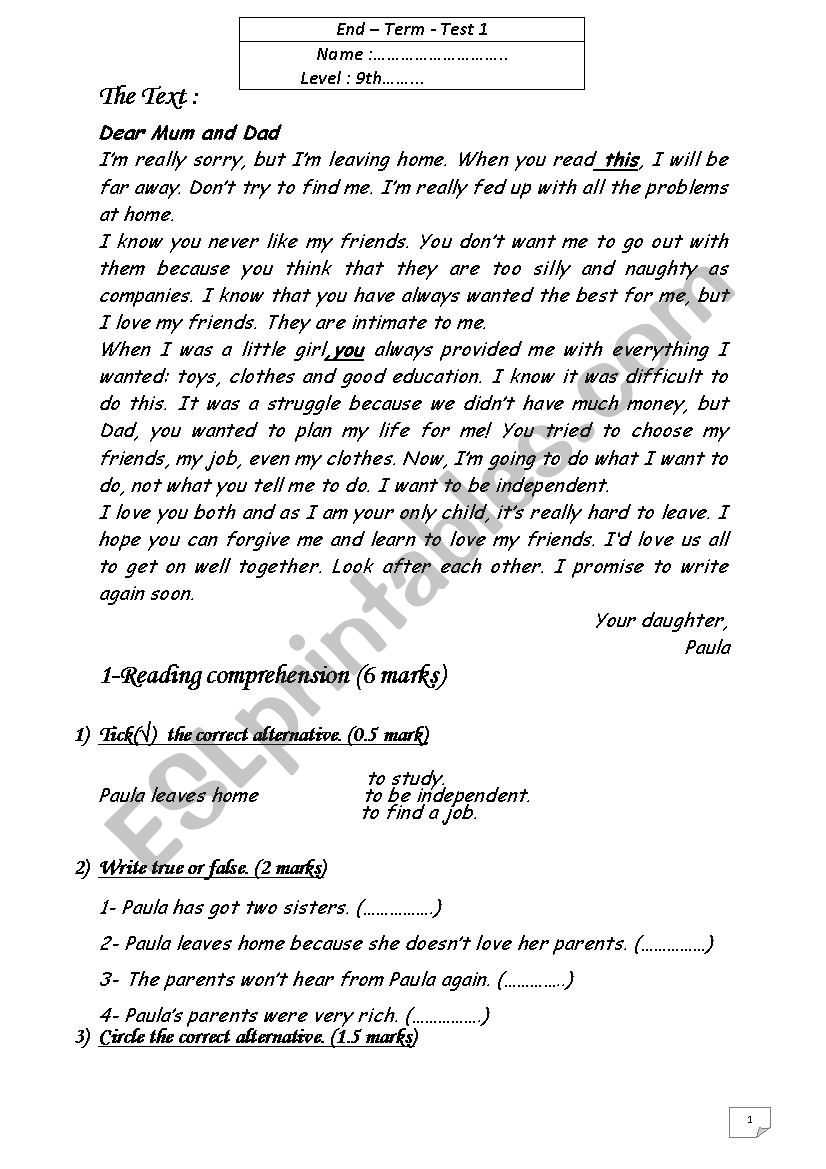 End – Term - Test 1
Name :………………………..
Level : 9th……...
The Text :
Dear Mum and Dad
I’m really sorry, but I’m leaving home. When you read this, I will be
far away. Don’t try to find me. I’m really fed up with all the problems
at home.
I know you never like my friends. You don’t want me to go out with
them because you think that they are too silly and naughty as
companies. I know that you have always wanted the best for me, but
I love my friends. They are intimate to me.
When I was a little girl,you always provided me with everything I
wanted: toys, clothes and good education. I know it was difficult to
do this. It was a struggle because we didn’t have much money, but
Dad, you wanted to plan my life for me! You tried to choose my
friends, my job, even my clothes. Now, I’m going to do what I want to
do, not what you tell me to do. I want to be independent.
I love you both and as I am your only child, it’s really hard to leave. I
hope you can forgive me and learn to love my friends. I'd love us all
to get on well together. Look after each other. I promise to write
again soon.
Your daughter,
Paula
1-Reading comprehension (6 marks)
1) Tick(√) the correct alternative. (0.5 mark)
to study.
Paula leaves home to be independent.
to find a job.
2) Write true or false. (2 marks)
1- Paula has got two sisters. (…………….)
2- Paula leaves home because she doesn’t love her parents. (……………)
3- The parents won’t hear from Paula again. (…………..)
4- Paula’s parents were very rich. (…………….)
3) Circle the correct alternative. (1.5 marks)
1
ESLprintables.com